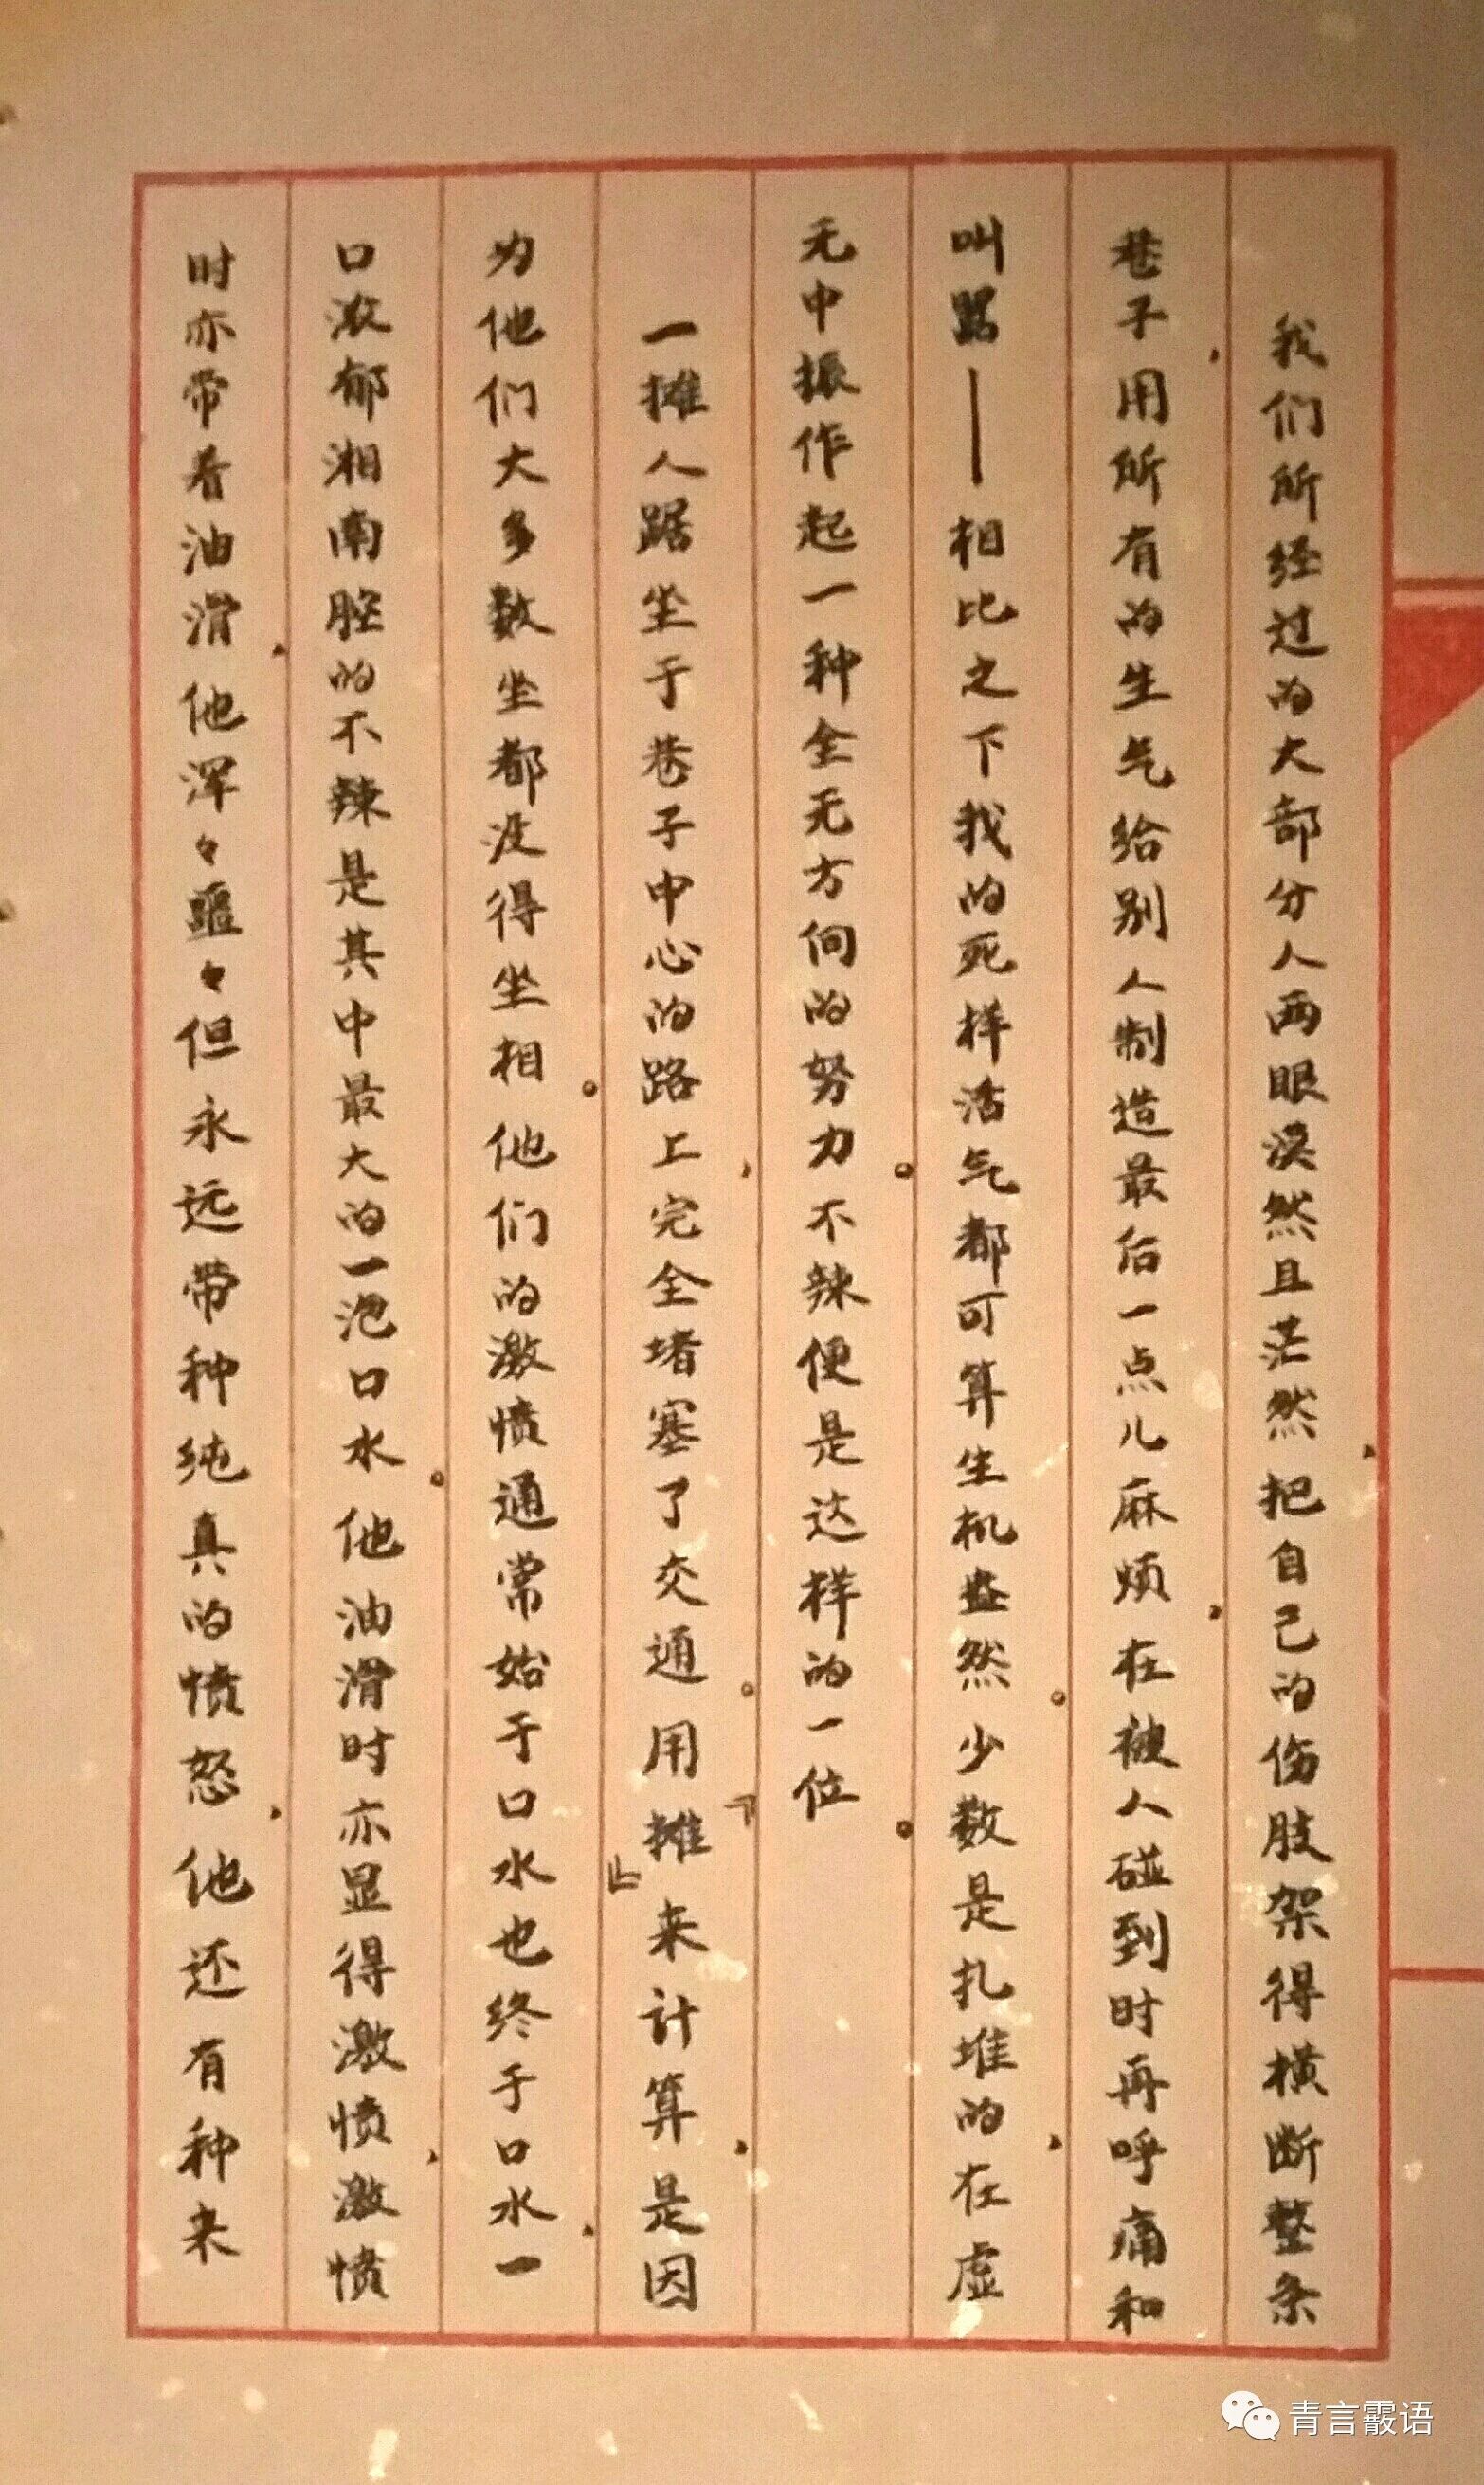 我们所经过的大部分人两眼漠然且茫然,把自己的伤肢架得横断整条
巷子,用所有的生气给别人制造最后一点儿麻烦,在被人碰到时再呼痛和
叫嚣——相比之下我的死样活气都可算生机盎然。少数是扎堆的,在虚
无中振作起一种全无方向的努力。不辣便是这样的一位。
一摊人踞坐于巷子中心的路上,完全堵塞了交通。用『摊』来计算,是因
为他们大多数坐都没得坐相。他们的激愤通常始于口水也终于口水,一
口浓郁湘南腔的不辣是其中最大的一泡口水。他油滑时亦显得激愤,激愤
时亦带着油滑,他浑々噩々但永远带种纯真的愤怒,他还有种来
青言霰语